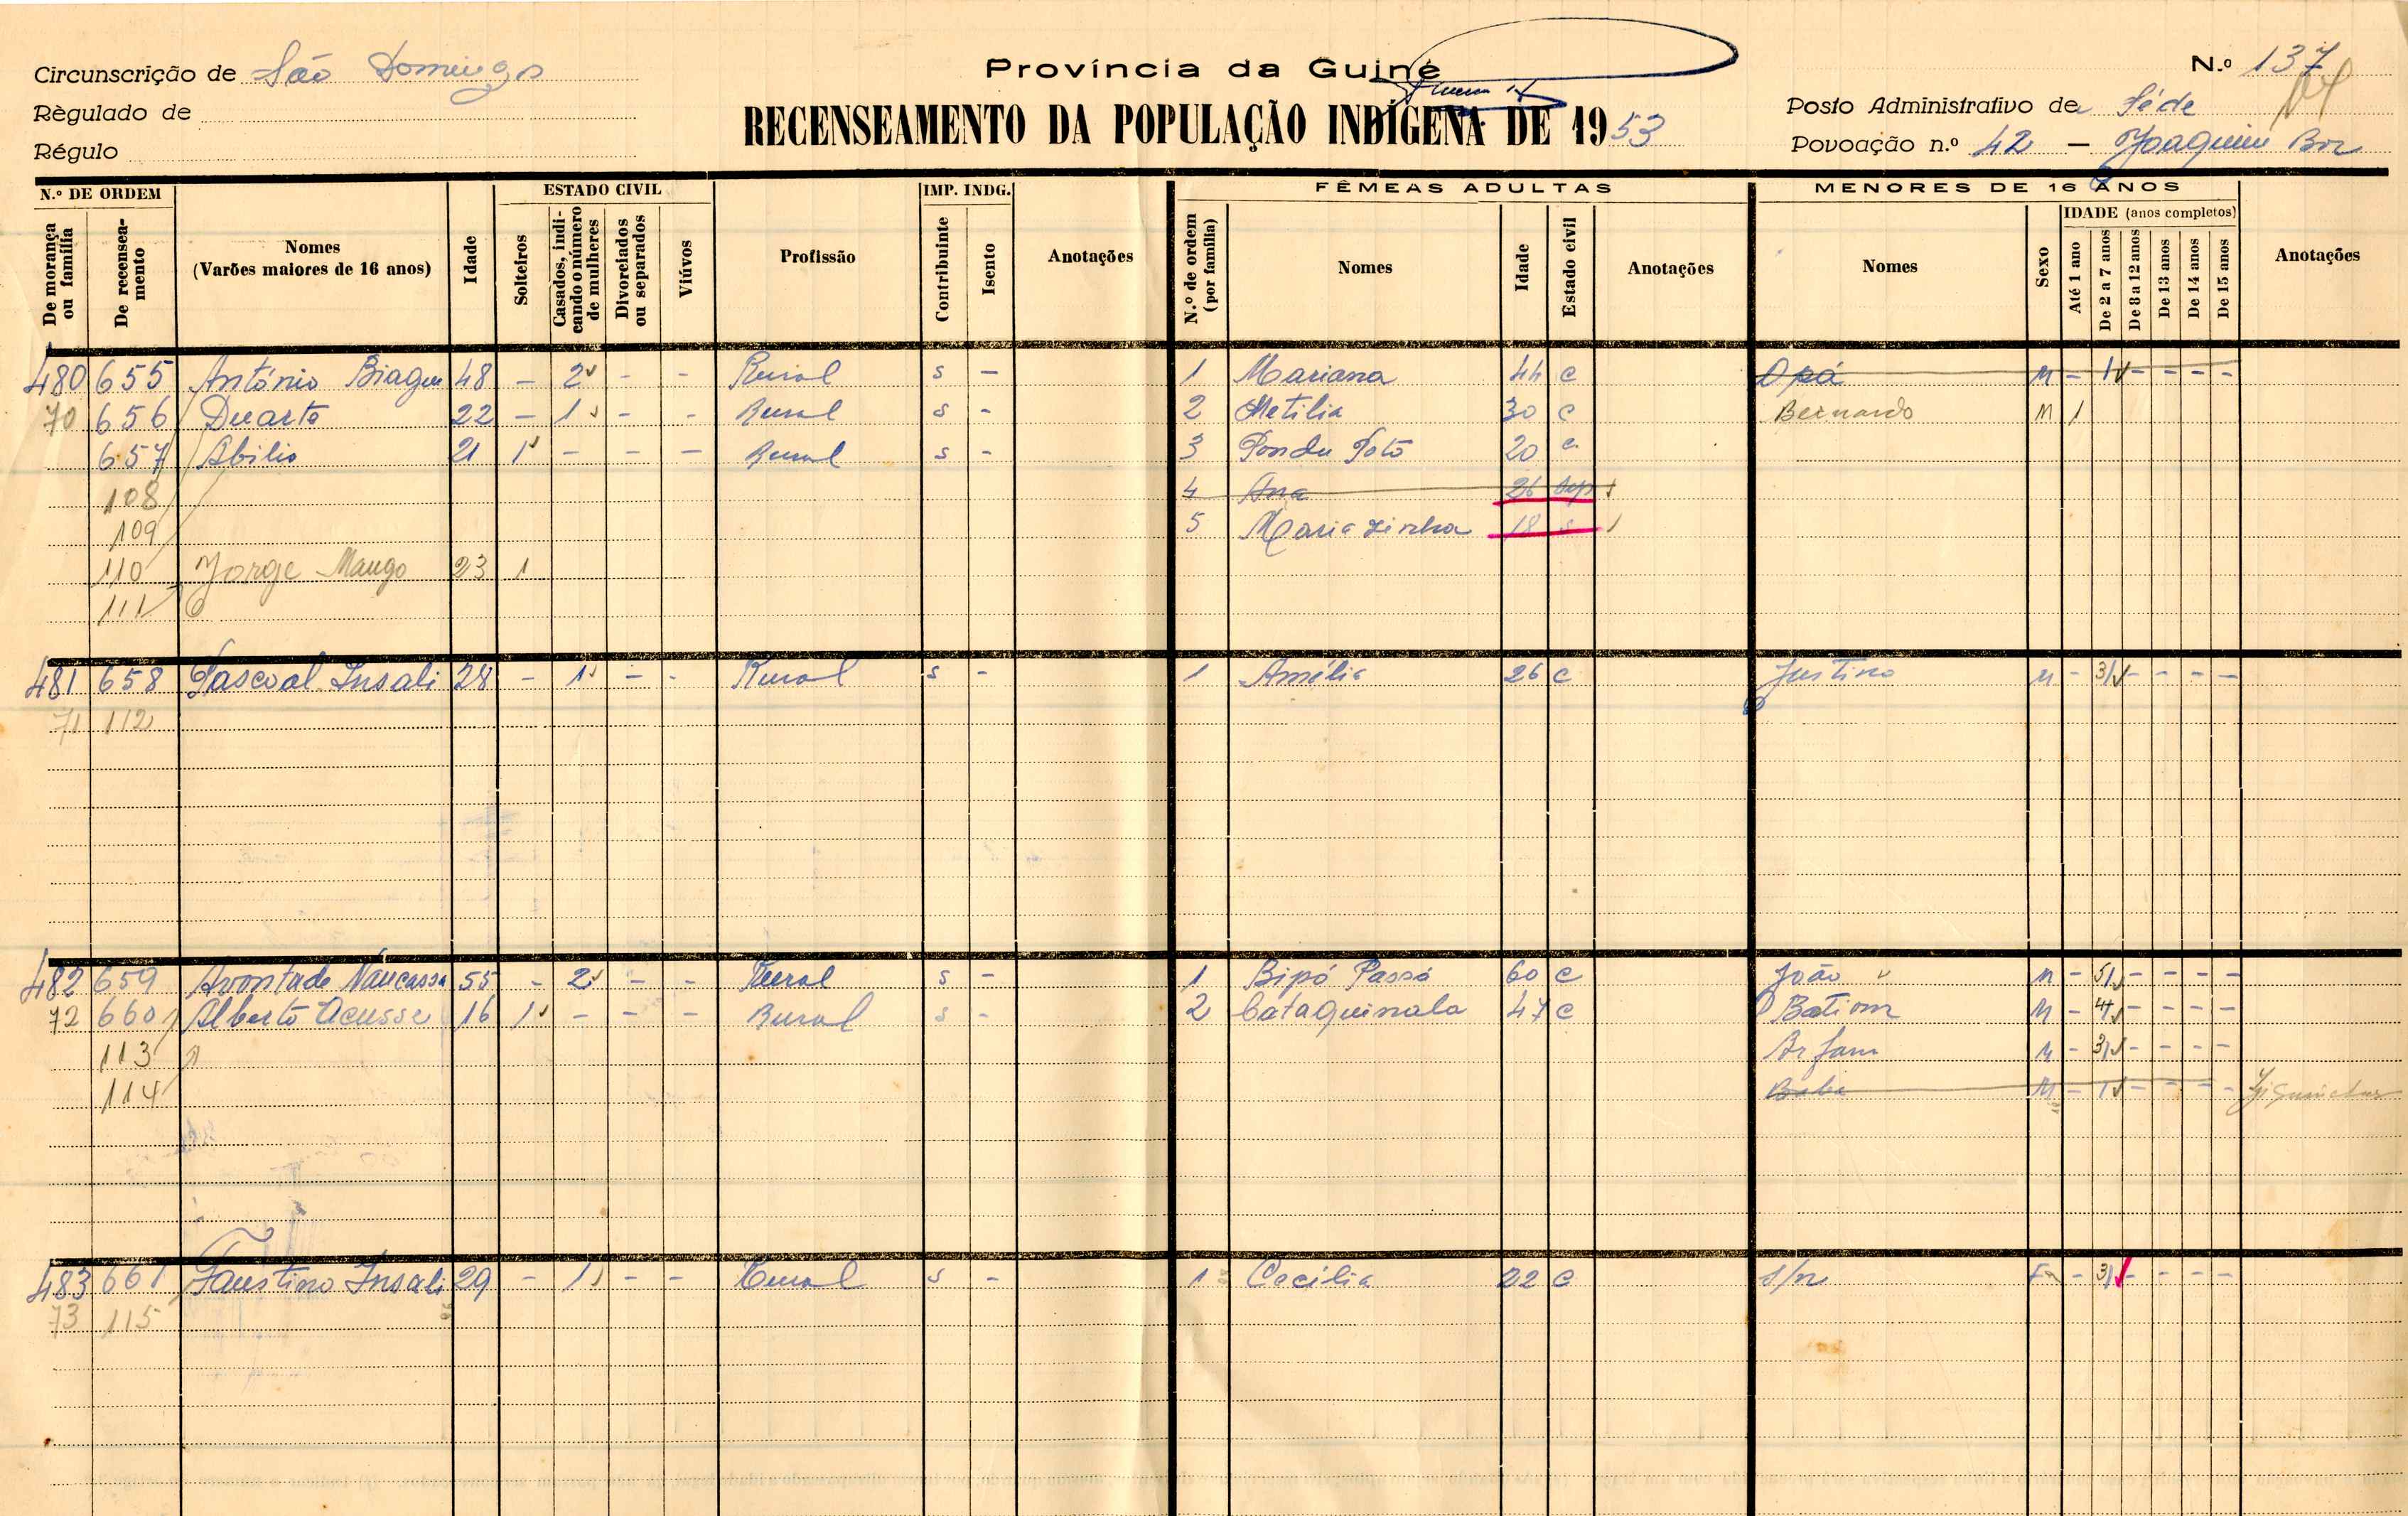 Circunscrição de São Domingos
Règulado de
Régulo
Província da Guiné
RECENSEAMENTO DA POPULAÇÃO INDÍGENA DE 1953
N.º 137
Posto Administrativo de Séde
Povoação n.º 42 — Joaquim
N.º DE ORDEM
De morança ou família
De recenseamento
Nomes
(Varões maiores de 16 anos)
Idade
ESTADO CIVIL
Solteiros
Casados, indicando o número de mulheres
Divorciados ou separados
Viúvos
Profissão
IMP. INDG.
Contribuinte
Isento
Anotações
FÊMEAS ADULTAS
N.º de ordem (por família)
Nomes
Idade
Estado civil
Anotações
MENORES DE 16 ANOS
Nomes
Sexo
IDADE (anos completos)
Até 1 ano
De 2 a 7 anos
De 8 a 12 anos
De 13 anos
De 14 anos
De 15 anos
Anotações
480 655 António 48 - 2 - - Rural s - 1 Mariana 44 c Opá M - 1 - - - -
70 656 Duarte 22 - 1 - - Rural s - 2 Metilia 30 c Bernardo M 1
657 Abilio 21 1 - - - Rural s - 3 20 c
108 4 Ana 26 sep
109 5 Mariazinha 18 s
110 Jorge Mango 23 1
111
481 658 Pascoal Insali 28 - 1 - - Rural s - 1 Amélia 26 c Justino M - 3 - - - -
71 112
482 659 55 - 2 - - Rural s - 1 Bipó Passó 60 c João M - 5 - - - -
72 660 Alberto Acusse 16 1 - - - Rural s - 2 Cataquinala 47 c M - 4 - - - -
113 M - 3 - - - -
114 M - 1 - - - -
483 661 Faustino Insali 29 - 1 - - Rural s - 1 Cecília 22 c s/n F - 3 - - - -
73 115